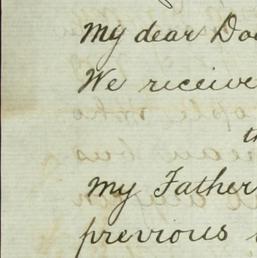 My dear Do
We receive
th
My Father
previous